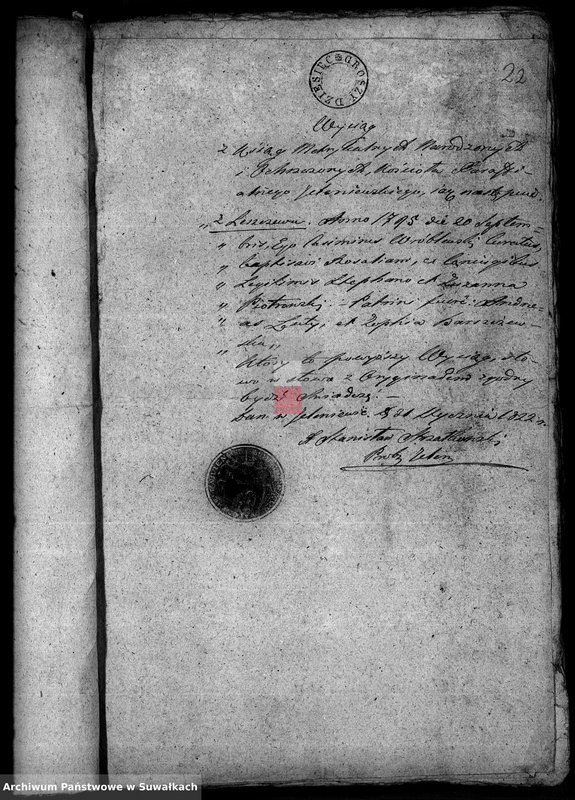 22
DZIESIĘĆ GROSZY
Wyciąg
z Xsiąg Metrykalnych Narodzonych
i Ochrzczonych, Kościoła Parafji-
alnego Jeleniewskiego, iak następuie.
„z Leszczewa. Anno 1795 die 20 Septem-
„ bris, Ego Casimirus Wróblewski Curatus,
„ baptisavi Rosaliam, ex Coniugibus
„ Legitimis Stephano et Zuzanna
„ Piotrowski - Patrini fuere: Andre-
„ as Luty, et Zophia
„
Który to powyższy Wyciąg, sło-
wo w słowo z Oryginałem zgodny
bydź świadczę. —
Dan w Jeleniewie d. Stycznia 1822 r.
X Stanisław
Prob: Jelen:
Archiwum Państwowe w Suwałkach